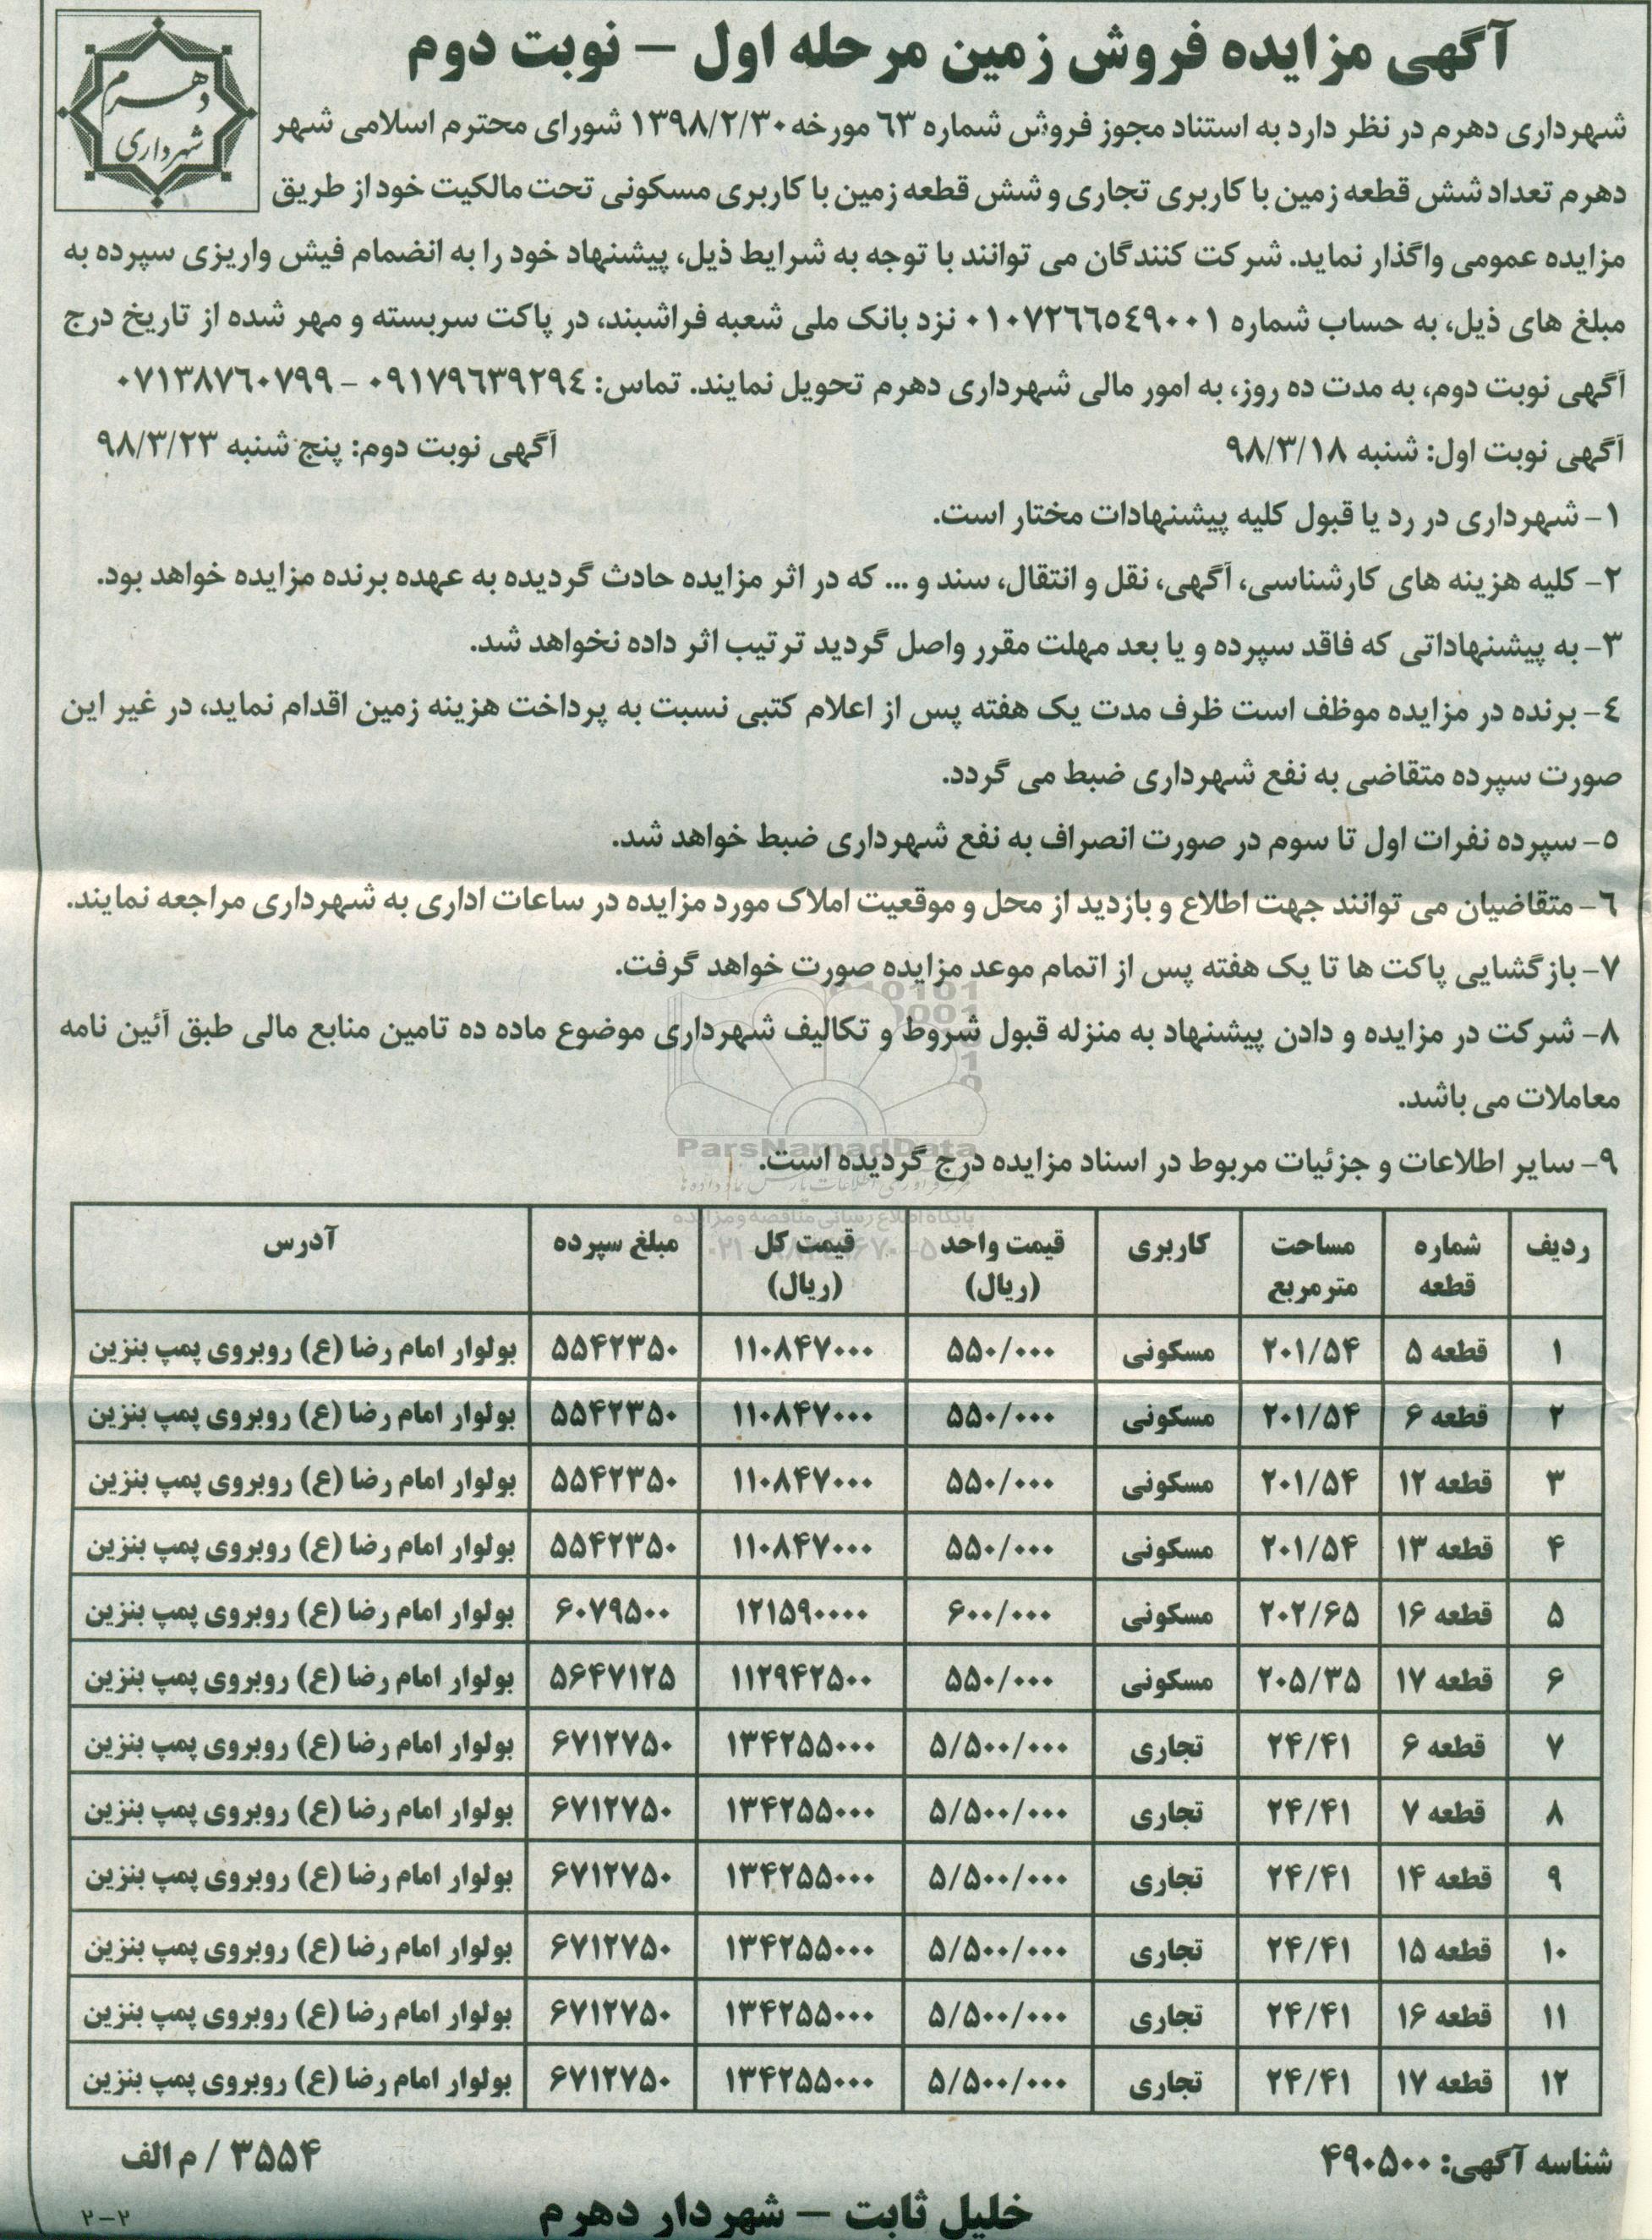 آگهی مزایده فروش زمین مرحله اول – نوبت دوم
دهرم
شهرداری
شهرداری دهرم در نظر دارد به استناد مجوز فروش شماره ٦٣ مورخه ١٣٩٨/٢/٣٠ شورای محترم اسلامی شهر
دهرم تعداد شش قطعه زمین با کاربری تجاری و شش قطعه زمین با کاربری مسکونی تحت مالکیت خود از طریق
مزایده عمومی واگذار نماید. شرکت کنندگان می توانند با توجه به شرایط ذیل، پیشنهاد خود را به انضمام فیش واریزی سپرده به
مبلغ های ذیل، به حساب شماره ٠١٠٧٢٦٦٥٤٩٠٠١ نزد بانک ملی شعبه فراشبند، در پاکت سربسته و مهر شده از تاریخ درج
آگهی نوبت دوم، به مدت ده روز، به امور مالی شهرداری دهرم تحویل نمایند. تماس: ٠٩١٧٩٦٣٩٢٩٤ – ٠٧١٣٨٧٦٠٧٩٩
آگهی نوبت اول: شنبه ٩٨/٣/١٨ آگهی نوبت دوم: پنج شنبه ٩٨/٣/٢٣
١- شهرداری در رد یا قبول کلیه پیشنهادات مختار است.
٢- کلیه هزینه های کارشناسی، آگهی، نقل و انتقال، سند و ... که در اثر مزایده حادث گردیده به عهده برنده مزایده خواهد بود.
٣- به پیشنهاداتی که فاقد سپرده و یا بعد مهلت مقرر واصل گردید ترتیب اثر داده نخواهد شد.
٤- برنده در مزایده موظف است ظرف مدت یک هفته پس از اعلام کتبی نسبت به پرداخت هزینه زمین اقدام نماید، در غیر این
صورت سپرده متقاضی به نفع شهرداری ضبط می گردد.
٥- سپرده نفرات اول تا سوم در صورت انصراف به نفع شهرداری ضبط خواهد شد.
٦- متقاضیان می توانند جهت اطلاع و بازدید از محل و موقعیت املاک مورد مزایده در ساعات اداری به شهرداری مراجعه نمایند.
٧- بازگشایی پاکت ها تا یک هفته پس از اتمام موعد مزایده صورت خواهد گرفت.
٨- شرکت در مزایده و دادن پیشنهاد به منزله قبول شروط و تکالیف شهرداری موضوع ماده ده تامین منابع مالی طبق آئین نامه
معاملات می باشد.
ParsNamadData
٩- سایر اطلاعات و جزئیات مربوط در اسناد مزایده درج گردیده است.
پایگاه اطلاع رسانی مناقصه و مزایده
ردیف شماره قطعه مساحت مترمربع کاربری قیمت واحد (ریال) قیمت کل (ریال) مبلغ سپرده آدرس
۱ قطعه ۵ ۲۰۱/۵۴ مسکونی ۵۵۰/۰۰۰ ۱۱۰۸۴۷۰۰۰ ۵۵۴۲۳۵۰ بولوار امام رضا (ع) روبروی پمپ بنزین
۲ قطعه ۶ ۲۰۱/۵۴ مسکونی ۵۵۰/۰۰۰ ۱۱۰۸۴۷۰۰۰ ۵۵۴۲۳۵۰ بولوار امام رضا (ع) روبروی پمپ بنزین
۳ قطعه ۱۲ ۲۰۱/۵۴ مسکونی ۵۵۰/۰۰۰ ۱۱۰۸۴۷۰۰۰ ۵۵۴۲۳۵۰ بولوار امام رضا (ع) روبروی پمپ بنزین
۴ قطعه ۱۳ ۲۰۱/۵۴ مسکونی ۵۵۰/۰۰۰ ۱۱۰۸۴۷۰۰۰ ۵۵۴۲۳۵۰ بولوار امام رضا (ع) روبروی پمپ بنزین
۵ قطعه ۱۶ ۲۰۲/۶۵ مسکونی ۶۰۰/۰۰۰ ۱۲۱۵۹۰۰۰۰ ۶۰۷۹۵۰۰ بولوار امام رضا (ع) روبروی پمپ بنزین
۶ قطعه ۱۷ ۲۰۵/۳۵ مسکونی ۵۵۰/۰۰۰ ۱۱۲۹۴۲۵۰۰ ۵۶۴۷۱۲۵ بولوار امام رضا (ع) روبروی پمپ بنزین
۷ قطعه ۶ ۲۴/۴۱ تجاری ۵/۵۰۰/۰۰۰ ۱۳۴۲۵۵۰۰۰ ۶۷۱۲۷۵۰ بولوار امام رضا (ع) روبروی پمپ بنزین
۸ قطعه ۷ ۲۴/۴۱ تجاری ۵/۵۰۰/۰۰۰ ۱۳۴۲۵۵۰۰۰ ۶۷۱۲۷۵۰ بولوار امام رضا (ع) روبروی پمپ بنزین
۹ قطعه ۱۴ ۲۴/۴۱ تجاری ۵/۵۰۰/۰۰۰ ۱۳۴۲۵۵۰۰۰ ۶۷۱۲۷۵۰ بولوار امام رضا (ع) روبروی پمپ بنزین
۱۰ قطعه ۱۵ ۲۴/۴۱ تجاری ۵/۵۰۰/۰۰۰ ۱۳۴۲۵۵۰۰۰ ۶۷۱۲۷۵۰ بولوار امام رضا (ع) روبروی پمپ بنزین
۱۱ قطعه ۱۶ ۲۴/۴۱ تجاری ۵/۵۰۰/۰۰۰ ۱۳۴۲۵۵۰۰۰ ۶۷۱۲۷۵۰ بولوار امام رضا (ع) روبروی پمپ بنزین
۱۲ قطعه ۱۷ ۲۴/۴۱ تجاری ۵/۵۰۰/۰۰۰ ۱۳۴۲۵۵۰۰۰ ۶۷۱۲۷۵۰ بولوار امام رضا (ع) روبروی پمپ بنزین
شناسه آگهی: ۴۹۰۵۰۰ ۳۵۵۴ / م الف
خلیل ثابت – شهردار دهرم
۲-۲